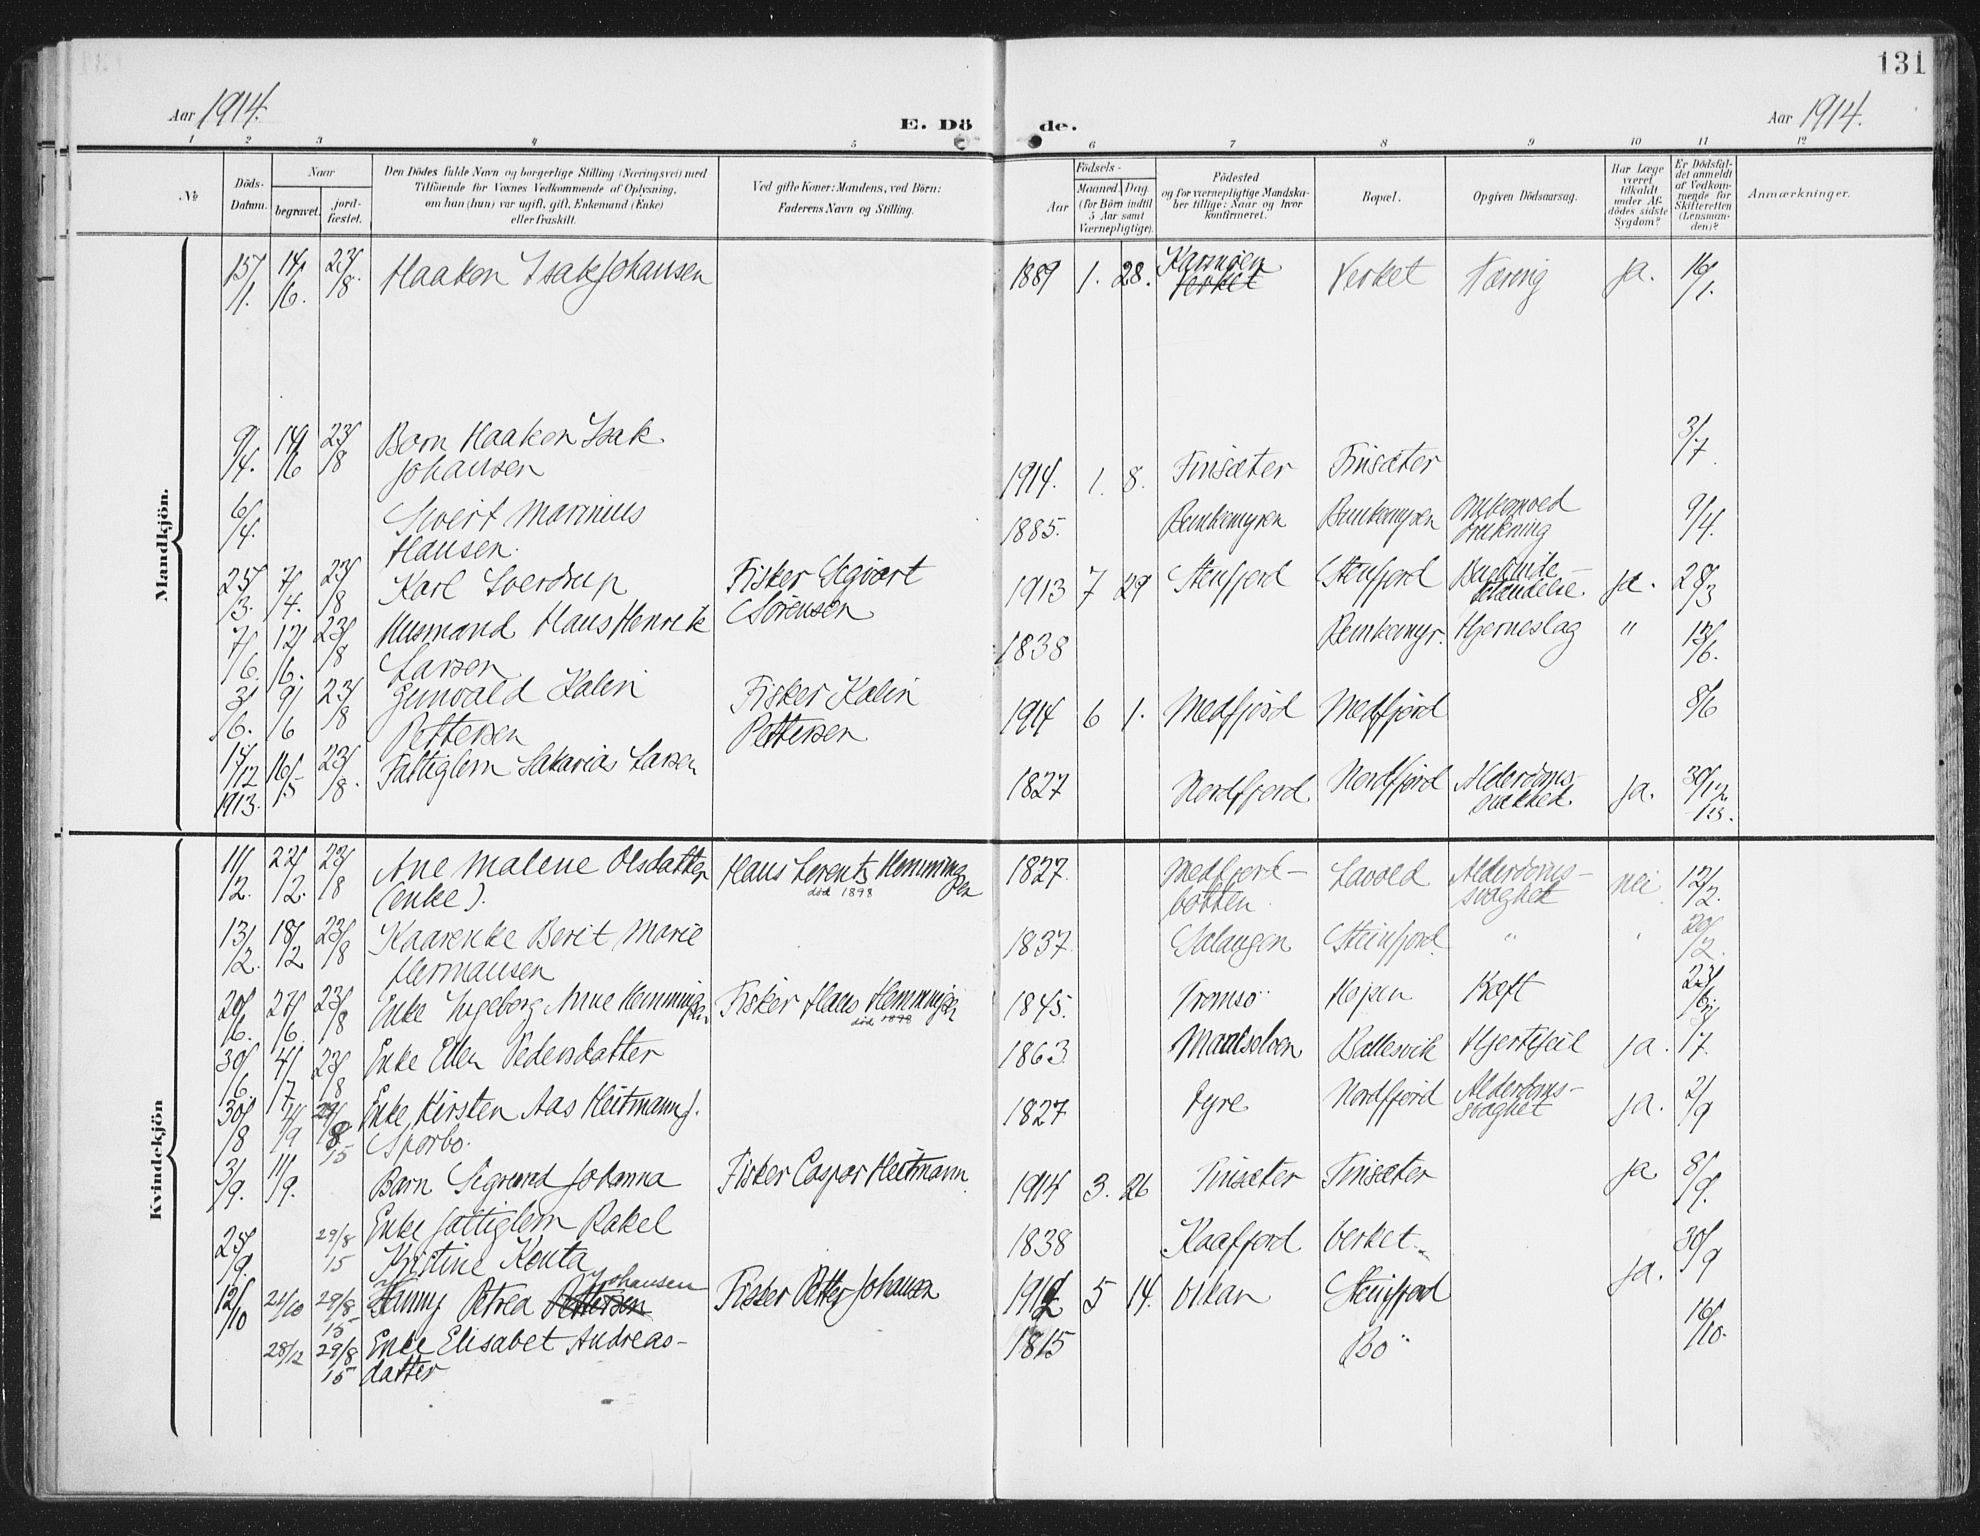 131
Aar 1914.
E. Dö de.
Aar 1914.
1 2 3 4 5 6 7 8 9 10 11 12
No
Döds-
Datum.
Naar
begravet.
jord-
fæstet.
Den Dödes fulde Navn og borgerlige Stilling (Næringsvei) med
Tilföiende for Voxnes Vedkommende af Oplysning,
om han (hun) var ugift, gift, Enkemand (Enke)
eller fraskilt.
Ved gifte Koner: Mandens, ved Börn:
Faderens Navn og Stilling.
Födsels-
Aar
Maaned Dag.
(for Börn indtil
5 Aar samt
Værnepligtige).
Födested
og for værnepligtige Mandska-
ber tillige: Naar og hvor
konfirmeret.
Bopæl.
Opgiven Dödsaarsag.
Har Læge
været
tilkaldt
under Af-
dödes sidste
Sygdom?
Er Dödsfal-
det anmeldt
af Vedkom-
mende for
Skifteretten
(Lensman-
den)?
Anmærkninger.
Mandkjön.
15/1. 14/6. 23/8 Haakon Isak Johansen 1889 1. 28. Karmøen Verket Tæring ja. 16/1.
9/4. 14/6 23/8 Barn Haakon Isak
Johansen 1914. 1. 8. Finsæter Finsæter 3/7
6/4. Sivert Marinius
Hansen. 1885. 9/4.
25/3. 7/4. 23/8 Karl Sverdrup Fisker Sigvart
Sørensen 1913 7 29 Stenfjord Stenfjord ja. 28/3
7/6. 12/6. 23/8 Husmand Hans Henrik
Larsen 1838 Hjerneslag " 12/6.
3/6. 9/6 23/8 Kalin
Pettersen Fisker Kalin
Pettersen 1914 6 1. Medfjord Medfjord 8/6
14/12 1913. 16/5 23/8. Fattiglem Sakarias Larsen 1827 Nordfjord Nordfjord Alderdoms-
ja. 30/12 13.
Kvindekjön
11/2. 22/2. 23/8 Ane Malene Olsdatter
(enke). Hans Lorents Hemming
sen
död 1898 1827. Medfjord-
botten Lavold Alderdoms-
svaghet nei 12/2.
13/2. 18/2 23/8 Kaarenke Berit Marie
Hermansen 1837. Salangen Steinfjord. " " 20/2.
20/6. 27/6. 23/8 Enke Ingeborg Anne Hemmingsen Fisker Hans Hemmingsen
död 1898 1845. Tromsö Kræft 23/6
30/6. 4/7 23/8 Enke Ellen Pedersdatter 1863 Maalselven Ballesvik Hjertefeil ja. 17.
30/8 29/8 15 Enke Kirsten Aas Heitmann f.
Sporbo. 1827 Nordfjord Alderdoms-
svaghet ja. 2/9
3/9. 11/9. Barn Sigrund Johanna Fisker Caspar Heitmann. 1914 3. 26 Finsæter Finsæter ja 8/9.
25/9. 29/8 15 Enke fattiglem Rakel
Kristine Konta 1838 Kaafjord Verket ja. 30/9
12/10 24/10 29/8 15 Fanny Petrea Pettersen Johansen Fisker Petter Johansen 1912 5 14. Vikan Steinfjord 16/10.
28/12 29/8 15 Enke Elisabet Andreas-
datter 1815 Bö